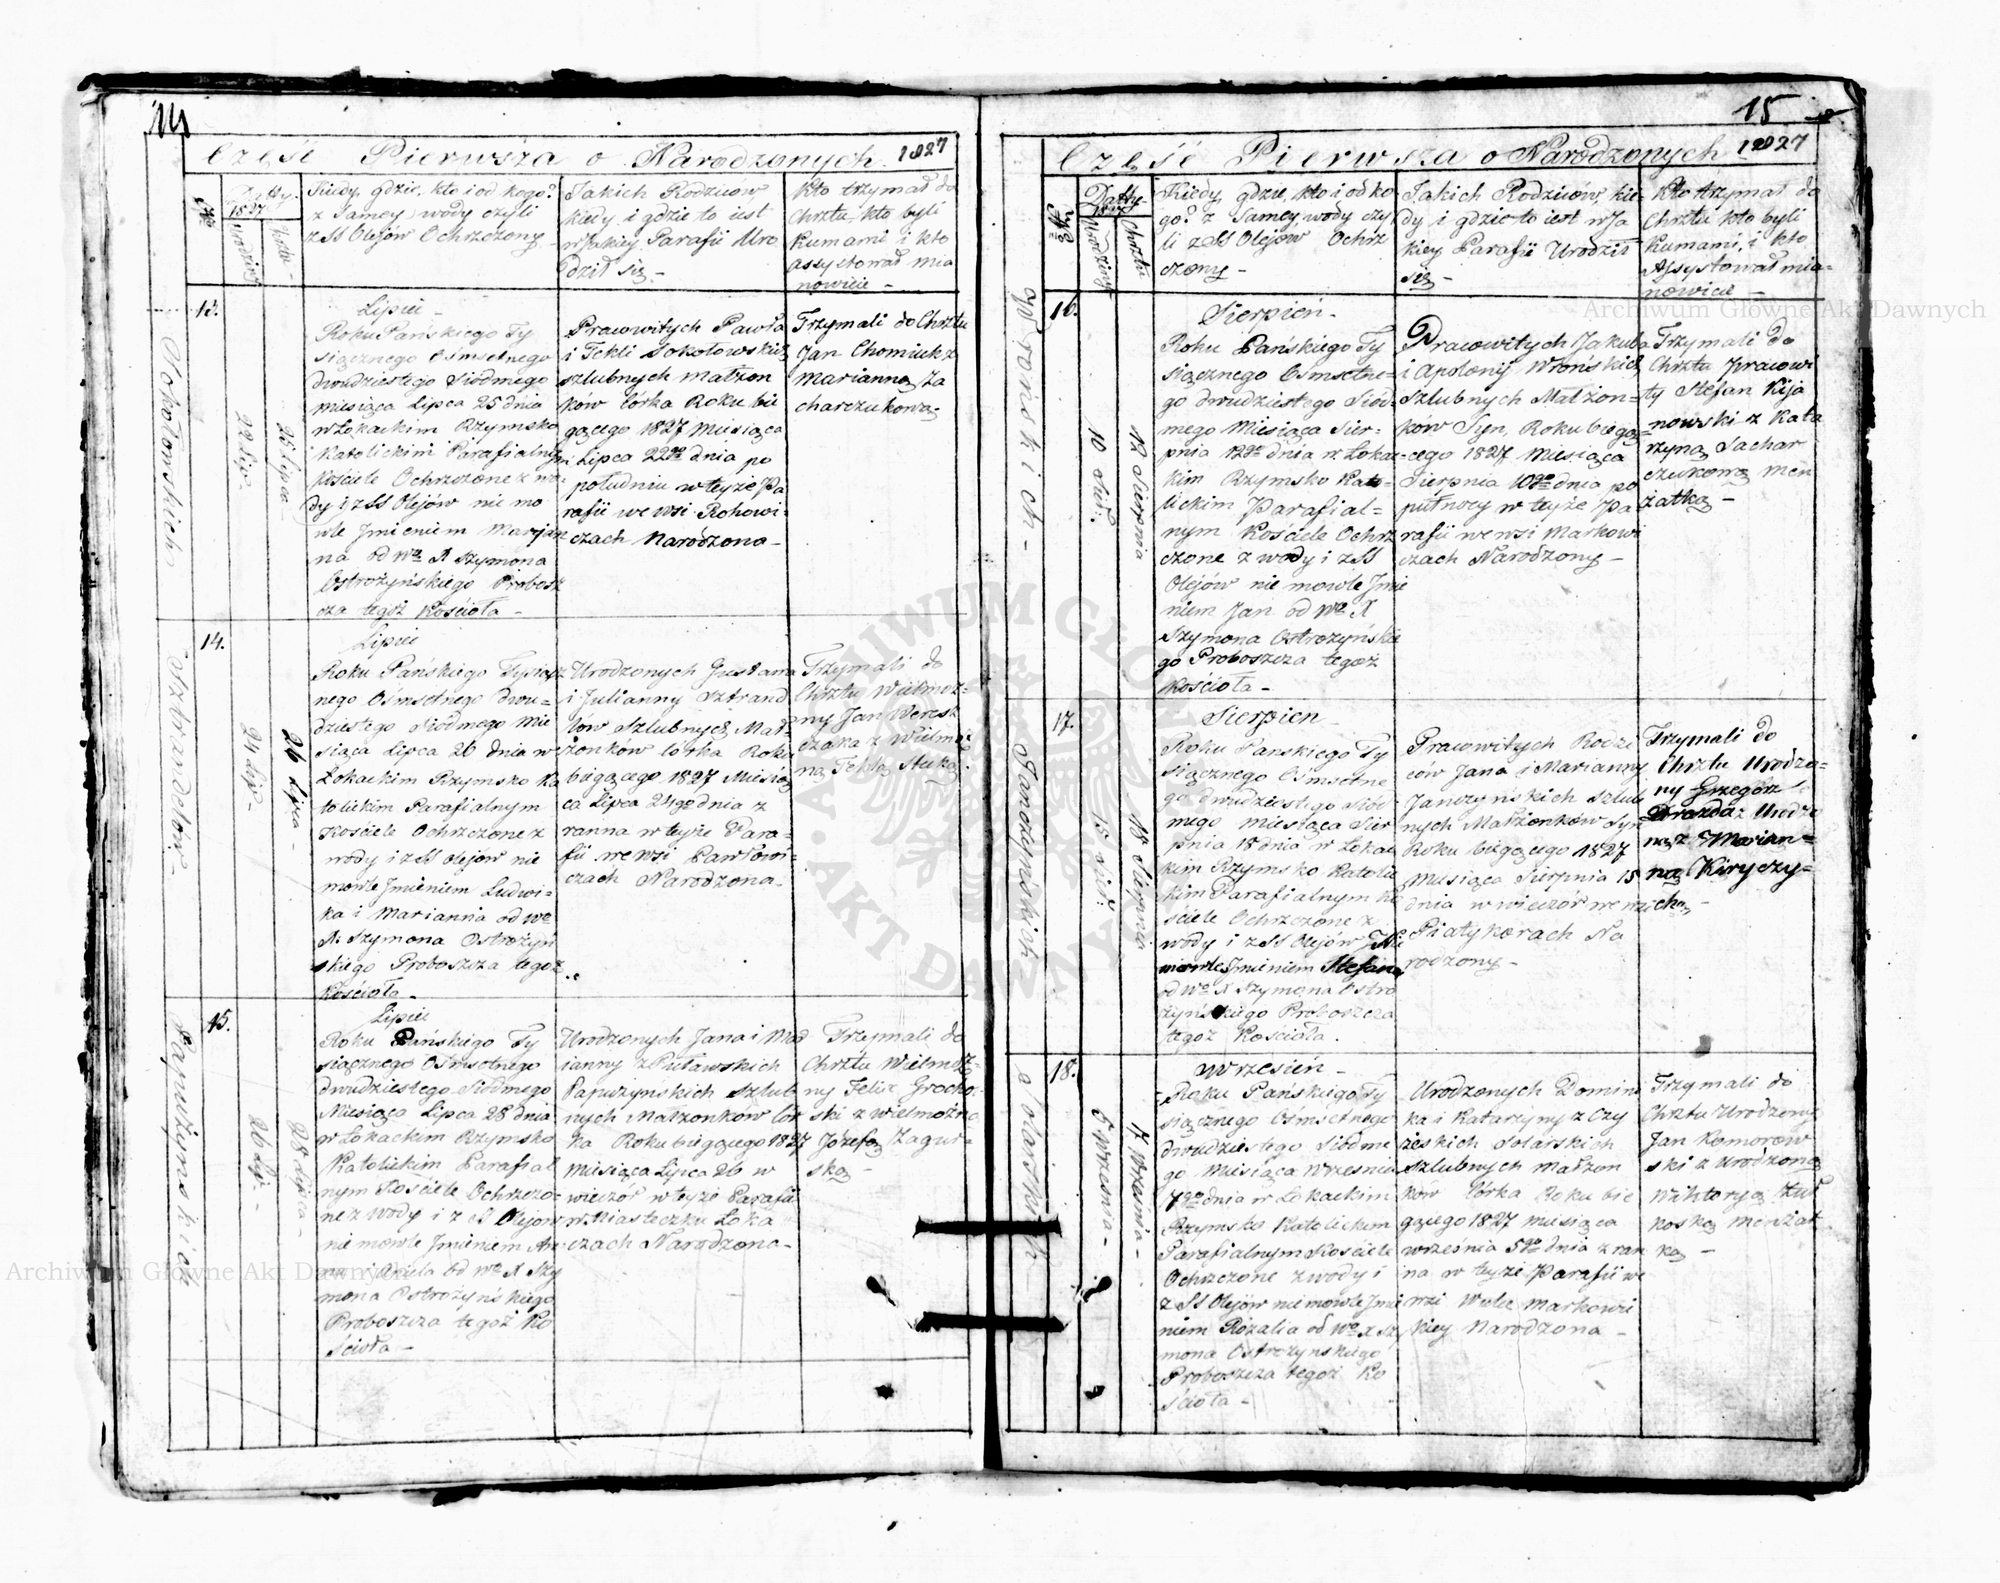 14
Część Pierwsza o Narodzonych 1827
№
Datty
1827
Urodzin
Chrztu
Kiedy, gdzie, kto i od kogo?
z Samey wody czyli
z SS Olejów Ochrzczony –
Jakich Rodziców,
kiedy i gdzie to iest
w Jakiey Parafii Uro
dził się –
Kto trzymał do
Chrztu, kto byli
Kumami i kto
assystował mia
nowicie –
Sokołowskich
13.
22 Lip:
25 Lipca
Lipiec –
Roku Pańskiego Ty
siącznego Ośmsetnego
dwudziestego Siodmego
miesiąca Lipca 25 dnia
w Łokackim Rzymsko
Katolickim Parafialnym
Kościele Ochrzczone z wo
dy i z SS Olejów nie mo
wle Jmieniem Maryan
na od Wo X Szymona
Ostrożyńskiego Probosz
cza tegoż Kościoła –
Pracowitych Pawła
i Tekli Sokołowskich
szlubnych małżon
ków Córka Roku bie
gącego 1827 Miesiąca
Lipca 22go dnia po
południu w teyże Pa
rafii we wsi Rohowi
czach Narodzona –
Trzymali do Chrztu
Jan Chomiuk z
Marianną Za
charczukową –
Sztrandelów –
14.
24 Lip:
26 Lipca –
Lipiec
Roku Pańskiego Tysiącz
nego Ośmsetnego dwu=
dziestego Siódmego Mie
siąca Lipca 26 dnia w
Łokackim Rzymsko Ka
tolickim Parafialnym
Kościele Ochrzczone z
wody i z SS Olejów nie
mowle Jmieniem Ludwi
ka i Marianna od Wo
X. Szymona Ostrożyń
skiego Proboszcza tegoż
Kościoła –
Urodzonych Gustawa
i Julianny Sztrand
lów Szlubnych Mał
żonków Córka Roku
biegącego 1827 Miesią
ca Lipca 24go dnia z
ranna w teyże Para=
fii we wsi Pawłowi
czach Narodzona –
Trzymali do
Chrztu Wielmoż=
ny Jan Weresz
czaka z Wielmo
ną Teklą
Papużyńskich
15.
26 Lip:
28 Lipca –
Lipiec
Roku Pańskiego Ty
siącznego Ośmsetnego
dwudziestego Siodmego
Miesiąca Lipca 28 dnia
w Łokackim Rzymsko
Katolickim Parafial
nym Kościele Ochrzczo=
ne z wody i z SS Olejow
nie mowle Jmieniem An
na i Aniela od Wo X Szy
mona Ostrożyńskiego
Proboszcza tegoż Ko
ścioła –
Urodzonych Jana i
ianny z Puławskich
Papużyńskich szlub
nych Małżonków Cor
ka Roku biegącego 1827
Miesiąca Lipca 26 w
wieczór w teyże Parafii
w Miasteczku Łoka
czach Narodzona –
Trzymali do
Chrztu Wielmoż=
ny Felix Grocho
ski z Wielmożną
Józefą Zagur=
ską –
15
Część Pierwsza o Narodzonych 1827
№
Datty
1827
Urodziny
Chrztu
Kiedy, gdzie, kto i od ko
go? z Samey wody czy
li z SS Olejów Ochrz
czony –
Jakich Rodziców, kie=
dy i gdzie to iest w Ja
kiey Parafii Urodził
się –
Kto trzymał do
Chrztu kto byli
Kumami, i kto
Assystował mia=
nowicie –
Wrońskich –
16.
10 Sier:
12 Sierpnia
Sierpień –
Roku Pańskiego Ty
siącznego Ośmsetne=
go dwudziestego Siod=
mego Miesiąca Sier=
pnia 12go dnia w Łokac=
kim Rzymsko Kato=
lickim Parafial=
nym Kościele Ochrz
czone z wody i z SS
Olejów nie mowle Jmie
niem Jan od Wo X
Szymona Ostrożyńskie
go Proboszcza tegoż
Kościoła –
Pracowitych Jakuba
i Apolonij Wrońskich
Szlubnych Małżon=
ków Syn, Roku biegą=
cego 1827 Miesiąca
Sierpnia 10go dnia po
północy w teyże Pa
rafii we wsi Markowi
czach Narodzony –
Trzymali do
Chrztu Pracowi
ty Stefan Kija
nowski z Kata
rzyną Sachar
czukową Męn
żatką –
Janczyńskich
17.
15 Sier:
18 Sierpnia
Sierpien –
Roku Pańskiego Ty
siącznego Ośmsetne
go dwudziestego Siód
mego miesiąca Sier
pnia 18 dnia w Łokac
kim Rzymsko Katolic
kim Parafialnym Ko
ściele Ochrzczone z
wody i z SS Olejów Nie
mowle Jmieniem Stefan
od Wo X Szymona Ostro
żyńskiego Proboszcza
tegoż Kościoła.
Pracowitych Rodzi
ców Jana i Marianny
Janczyńskich szlub
nych Małżonków Syn
Roku biegącego 1827
Miesiąca Sierpnia 15
dnia w wieczór we wsi
Piatykorach Na
rodzony –
Trzymali do
Chrztu Urodzo=
ny Grzegórz
Drozda z Urodzo
ną z Marian=
ną Kiryczy=
chą –
Solarskich
18.
5 Wrzesnia –
17 Wrzesnia –
Wrzesień –
Roku Pańskiego Ty
siącznego Ośmsetnego
dwudziestego Siódme
go Miesiąca Wrzesnia
7go dnia w Łokackim
Rzymsko Katolickim
Parafialnym Kościele
Ochrzczone z wody i
z SS Olejów niemowle Jmie
niem Rozalia od Wo X Szy
mona Ostrożyńskiego
Proboszcza tegoż Ko
ścioła –
Urodzonych Domini
ka i Katarzyny z Czy
żeskich Solarskich
szlubnych małżon
ków Córka Roku bie
gącego 1827 miesiąca
września 5go dnia z ran
na w teyże Parafii we
wsi Wulce Markowic
kiey Narodzona –
Trzymali do
Chrztu Urodzony
Jan Komorow
ski z Urodzoną
Wiktoryą Żuł
koską Męnżat
ką –
Archiwum Główne Akt Dawnych
Archiwum Główne Akt Dawnych
ARCHIWUM GŁÓWNE AKT DAWNYCH